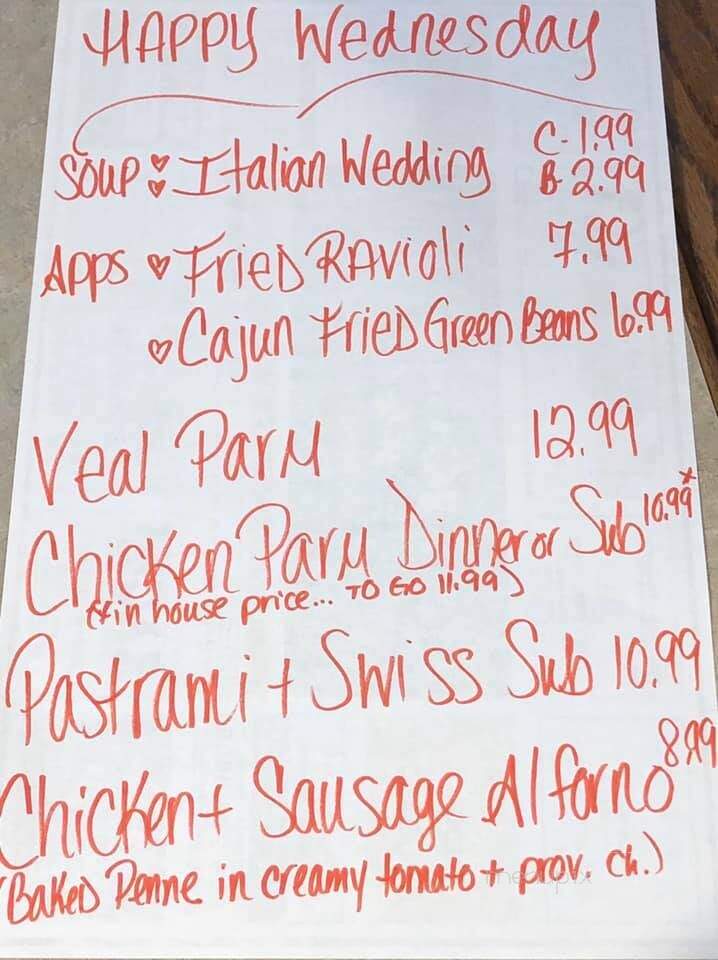 HAPPY Wednesday
Soup: Italian Wedding C- 1.99
B- 2.99
Apps Fried Ravioli 7.99
Cajun Fried Green Beans 6.99
Veal Parm 12.99
Chicken Parm Dinner or Sub 10.99*
(*in house price... TO GO 11.99)
Pastrami + Swiss Sub 10.99
Chicken + Sausage Al forno 8.99
(Baked Penne in creamy tomato + prov. ch.)